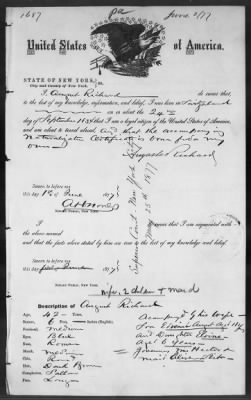 1687
June 2/77
United States of America.
STATE OF NEW YORK,
City and County of New York,
I, August Richard do swear that,
to the best of my knowledge, information, and belief, I was born in Switzerland
on or about the 24th
day of September 1834 that I am a legal citizen of the United States,
and am about to travel abroad. And that the accompanying
Naturalization Certificate is bona fide my
own
Auguste Richard
Sworn to before me
this 1st June 1877
NOTARY PUBLIC, NEW YORK.
Superior Court New York City
I am acquainted with
the above named
and that the facts above stated by him are true to the best of my knowledge and belief.
Sworn to before me
this 187
NOTARY PUBLIC, NEW YORK.
Wife, 2 children & maid
Description of August Richard
Age, 42
Stature, 6 Feet Inches (English)
Forehead, medium
Eyes, Blue
Nose, Roman
Mouth, medium
Chin, Round
Hair, Dark Brown
Complexion,
Face, Long
Accompanied by his wife
Son
and Daughter
Age 6 Years